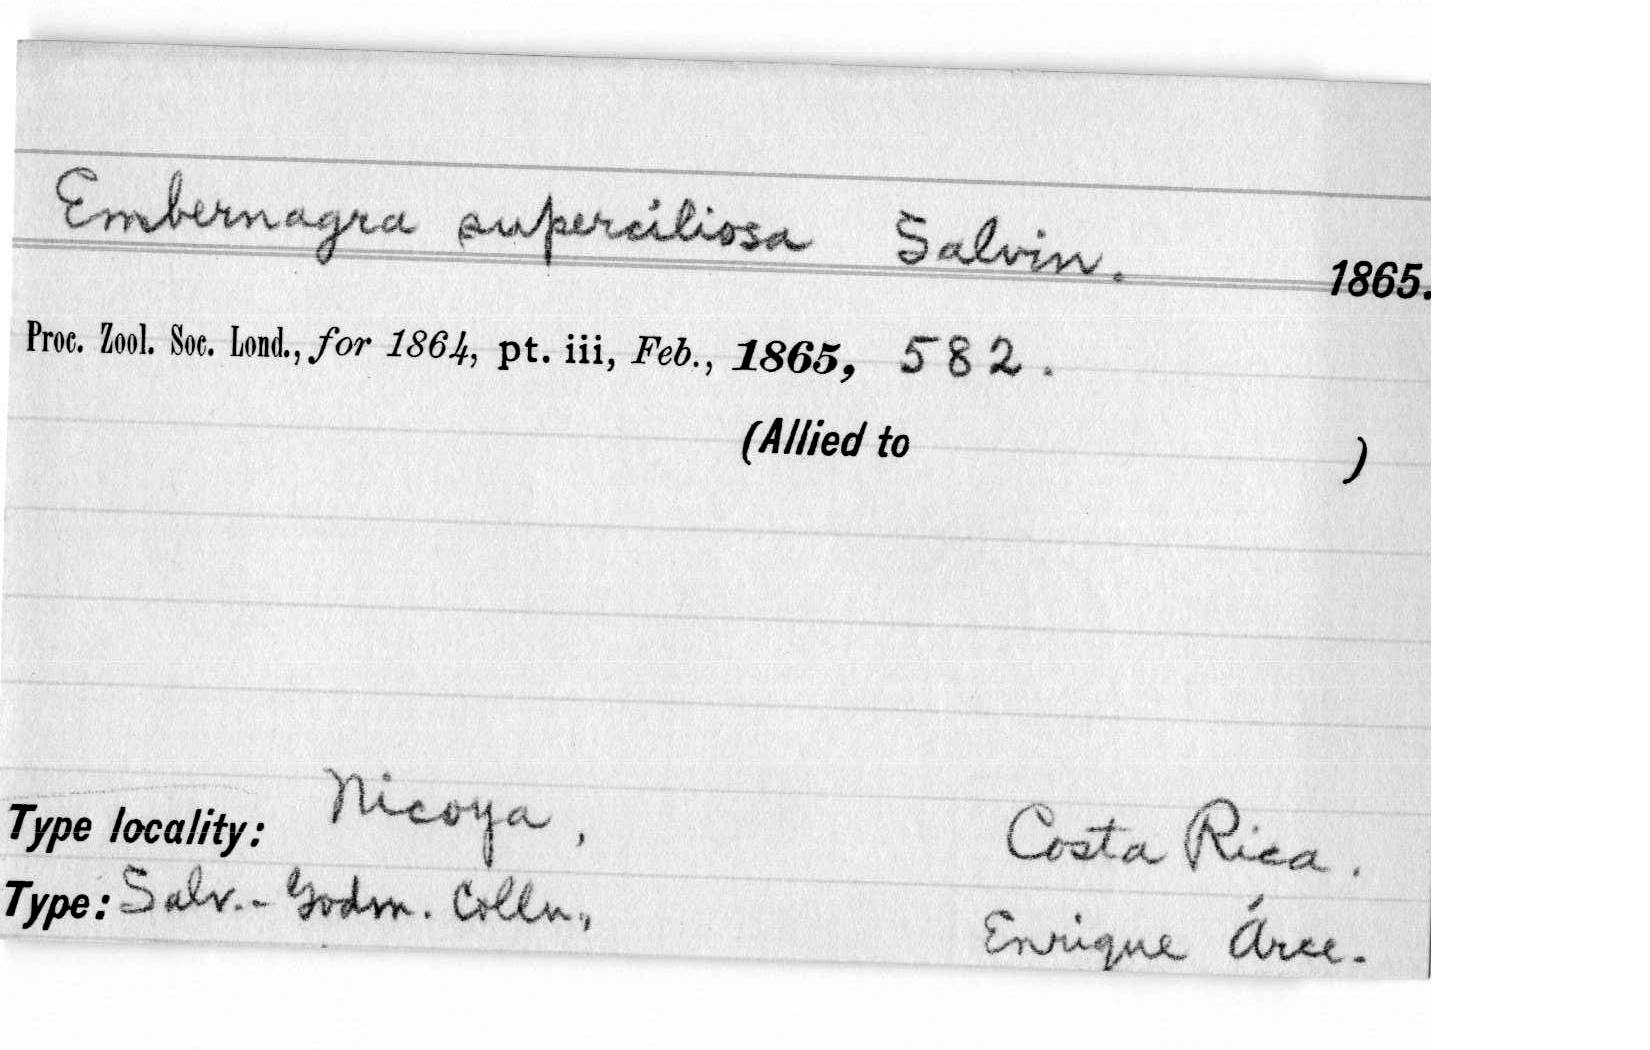 Embernagra superciliosa Salvin. 1865.
Proc. Zool. Soc. Lond., for 1864, pt. iii, Feb., 1865, 582.
(Allied to )
Type locality: Nicoya, Costa Rica.
Type: Salv.- Godm. Colln., Enrique Árce.